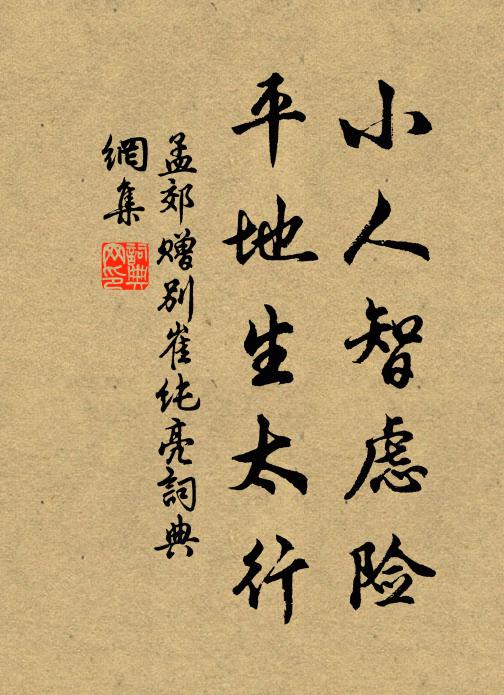 小人智虑险
平地生太行
孟郊赠别崔纯亮詞典
網集
詞典网印